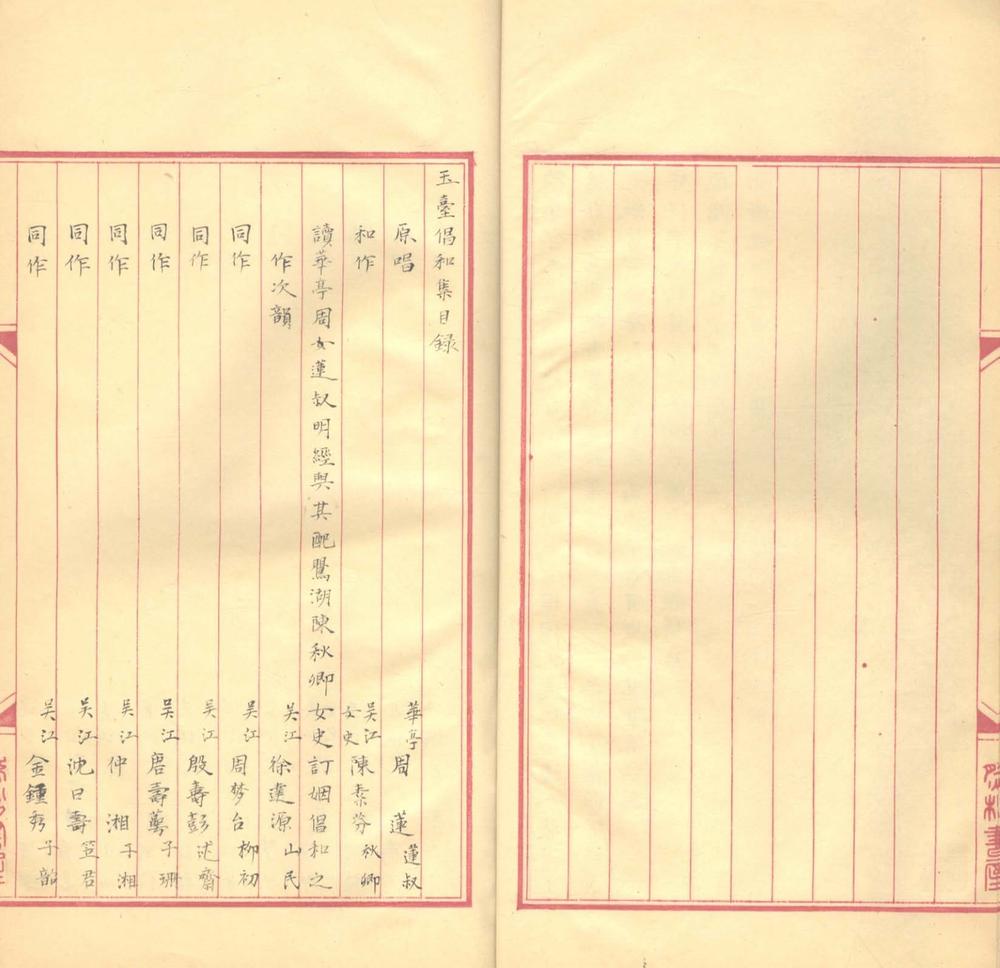 玉臺倡和集目録
原唱 華亭 周 蓮 蓮叔
和作 吴江女史 陳素芬 秋卿
讀華亭周女蓮叔明經與其配鶯湖陳秋卿女史訂姻倡和之
作次韻 吴江 徐達源 山民
同作 吴江 周夢台 柳初
同作 吴江 殷壽彭 述齋
同作 吴江 唐壽萼 子珊
同作 吴江 仲 湘 子湘
同作 吴江 沈曰壽 笠君
同作 吴江 金鍾秀 子韶